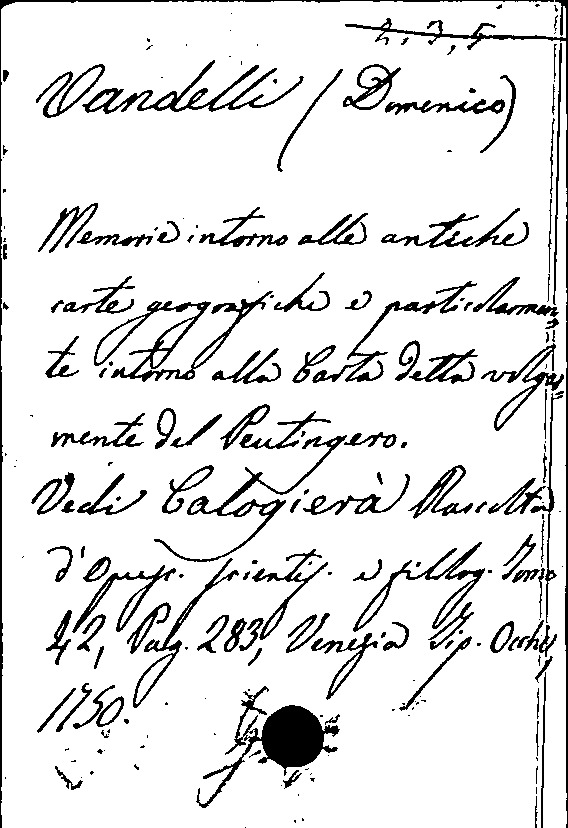 2, 3, 5
Vandelli (Domenico)
Memorie intorno alle antiche
carte geografiche e particolarmen=
te intorno alla Carta detta volgar=
mente del Peutingero.
Vedi Calogierà Raccolta
d'Opusc. scientif. e fillog. Tomo
42, Pag. 283, Venezia Tip. Occhi,
1750.